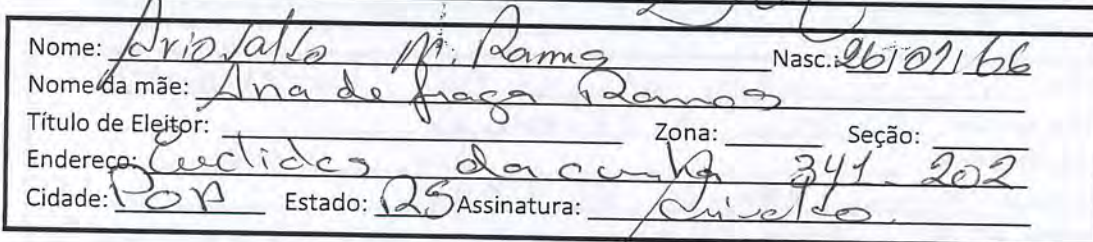 Nome: Ariovaldo M. Ramos Nasc.: 26/07/66
Nome da mãe: Ana de fraga Ramos
Título de Eleitor: Zona: Seção:
Endereço: Euclides da cunha 341 - 202
Cidade: POA Estado: RS Assinatura: